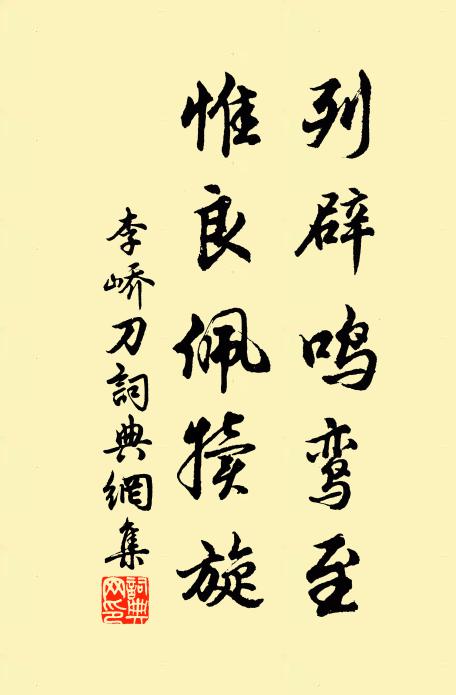 列辟鸣鸾至
惟良佩犊旋
李峤刀詞典網集
詞典网印